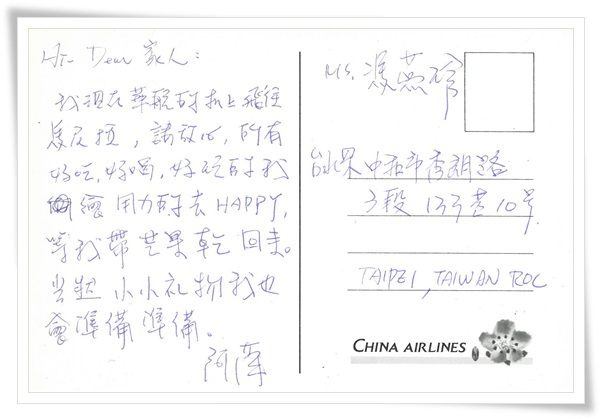 Hi~ Dear 家人:
我現在華航的机上飛往
馬尼拉,請放心,所有
好吃,好喝,好玩的我
會用力的去HAPPY,
等我帶芒果乾回來。
當然小小礼物我也
會準備準備。
阿潼
MS. 馮燕玲
台北県中和市秀朗路
3段133巷10号
TAIPEI, TAIWAN ROC
CHINA AIRLINES